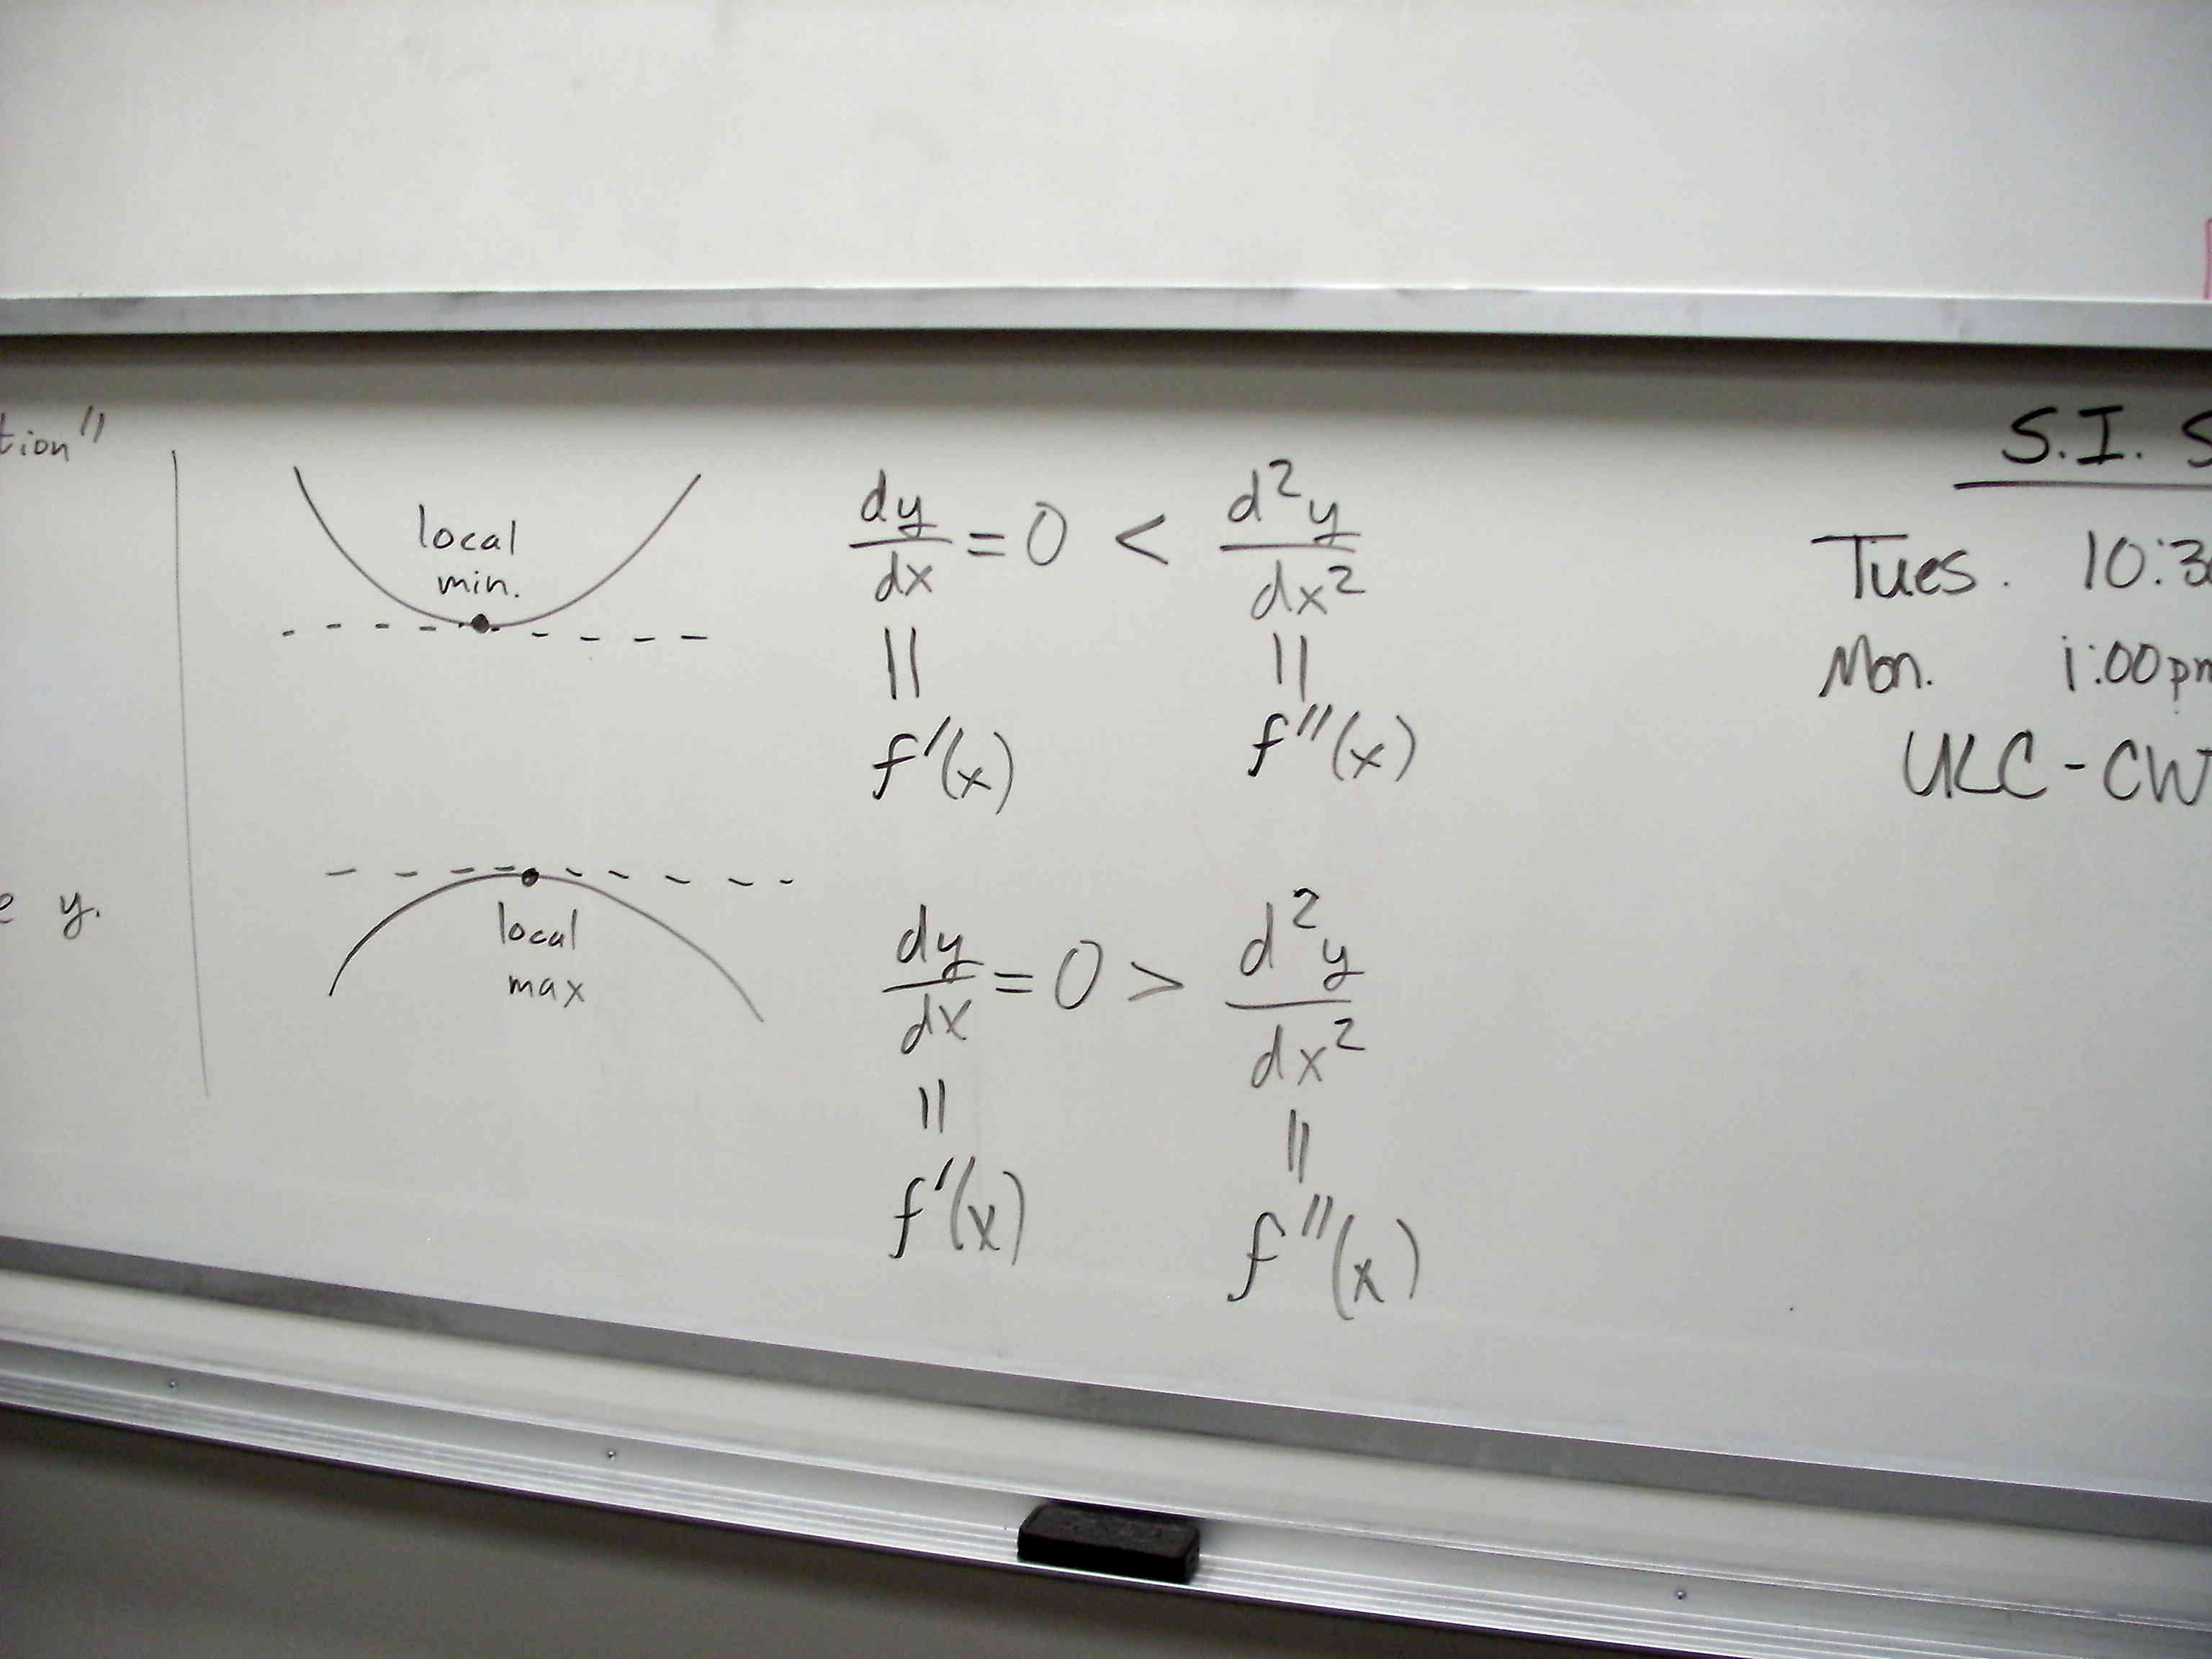 tion"
y.
local
min.
dy/dx = 0 < d²y/dx²
||
||
f'(x)
f''(x)
local
max
dy/dx = 0 > d²y/dx²
||
||
f'(x)
f''(x)
S.I. S
Tues. 10:3
Mon. 1:00pm
ULC-CW